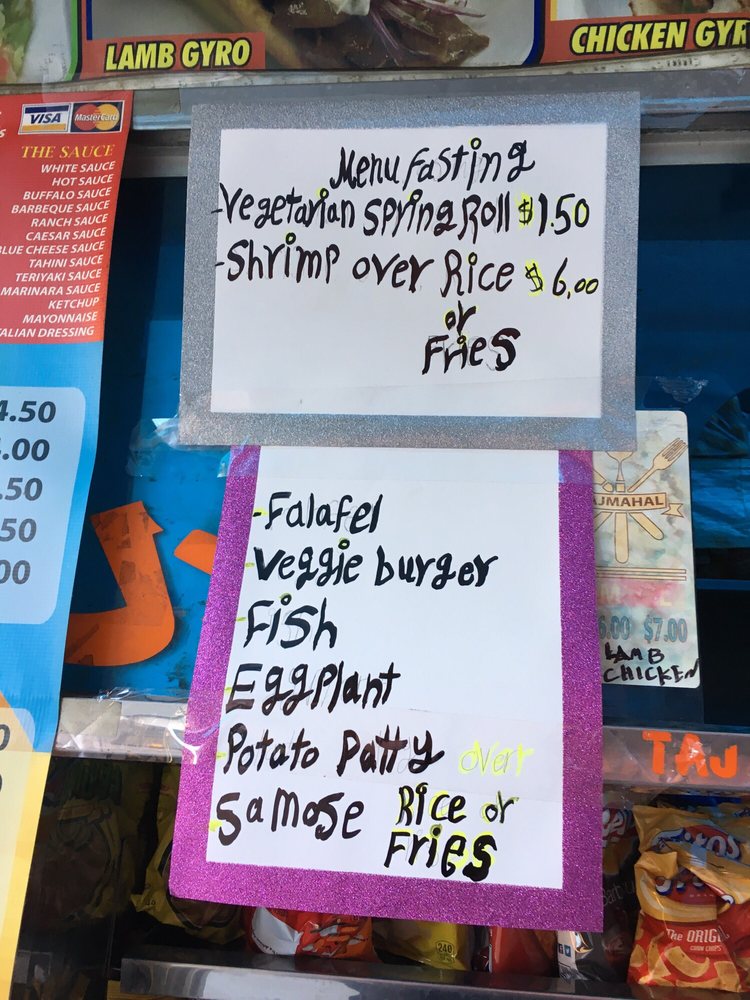 LAMB GYRO
CHICKEN GYR
VISA MasterCard
THE SAUCE
WHITE SAUCE
HOT SAUCE
BUFFALO SAUCE
BARBEQUE SAUCE
RANCH SAUCE
CAESAR SAUCE
BLUE CHEESE SAUCE
TAHINI SAUCE
TERIYAKI SAUCE
MARINARA SAUCE
KETCHUP
MAYONNAISE
ALIAN DRESSING
4.50
.00
.50
50
00
Menu Fasting
-Vegetarian Spring Roll $1.50
-Shrimp over Rice $6.00
or
Fries
-Falafel
-Veggie burger
-Fish
-EggPlant
-Potato Patty over
-Samose Rice or
Fries
JMAHAL
6.00 $7.00
LAMB
CHICKEN
TAJ
Fritos
The ORIGI
CORN CHIPS
240